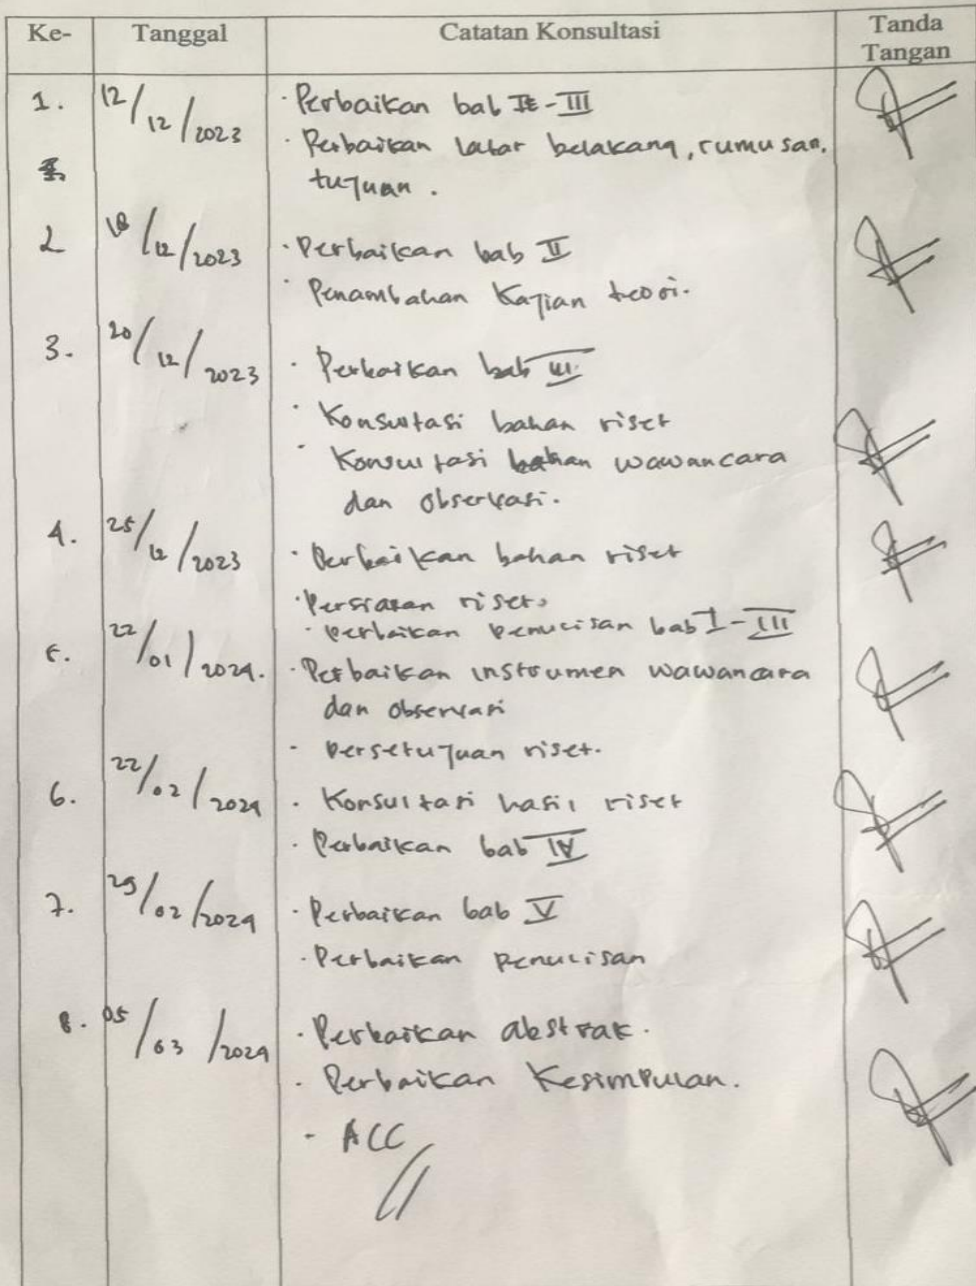 Ke- Tanggal Catatan Konsultasi Tanda Tangan
1. 12/12/2023 · Perbaikan bab II-III
· Perbaikan latar belakang, rumusan,
tujuan.
2 18/12/2023 · Perbaikan bab II
· Penambahan Kajian teori.
3. 20/12/2023 · Perbaikan bab III
· Konsultasi bahan riset
· Konsultasi bahan wawancara
dan observasi.
4. 25/12/2023 · Perbaikan bahan riset
· Persiapan riset.
· Perbaikan penulisan bab I-III
5. 22/01/2024. · Perbaikan instrumen wawancara
dan observasi
- Persetujuan riset.
6. 22/02/2024 · Konsultasi hasil riset
· Perbaikan bab IV
7. 29/02/2024 · Perbaikan bab V
· Perbaikan penulisan
8. 05/03/2024 · Perbaikan abstrak.
· Perbaikan Kesimpulan.
- ACC